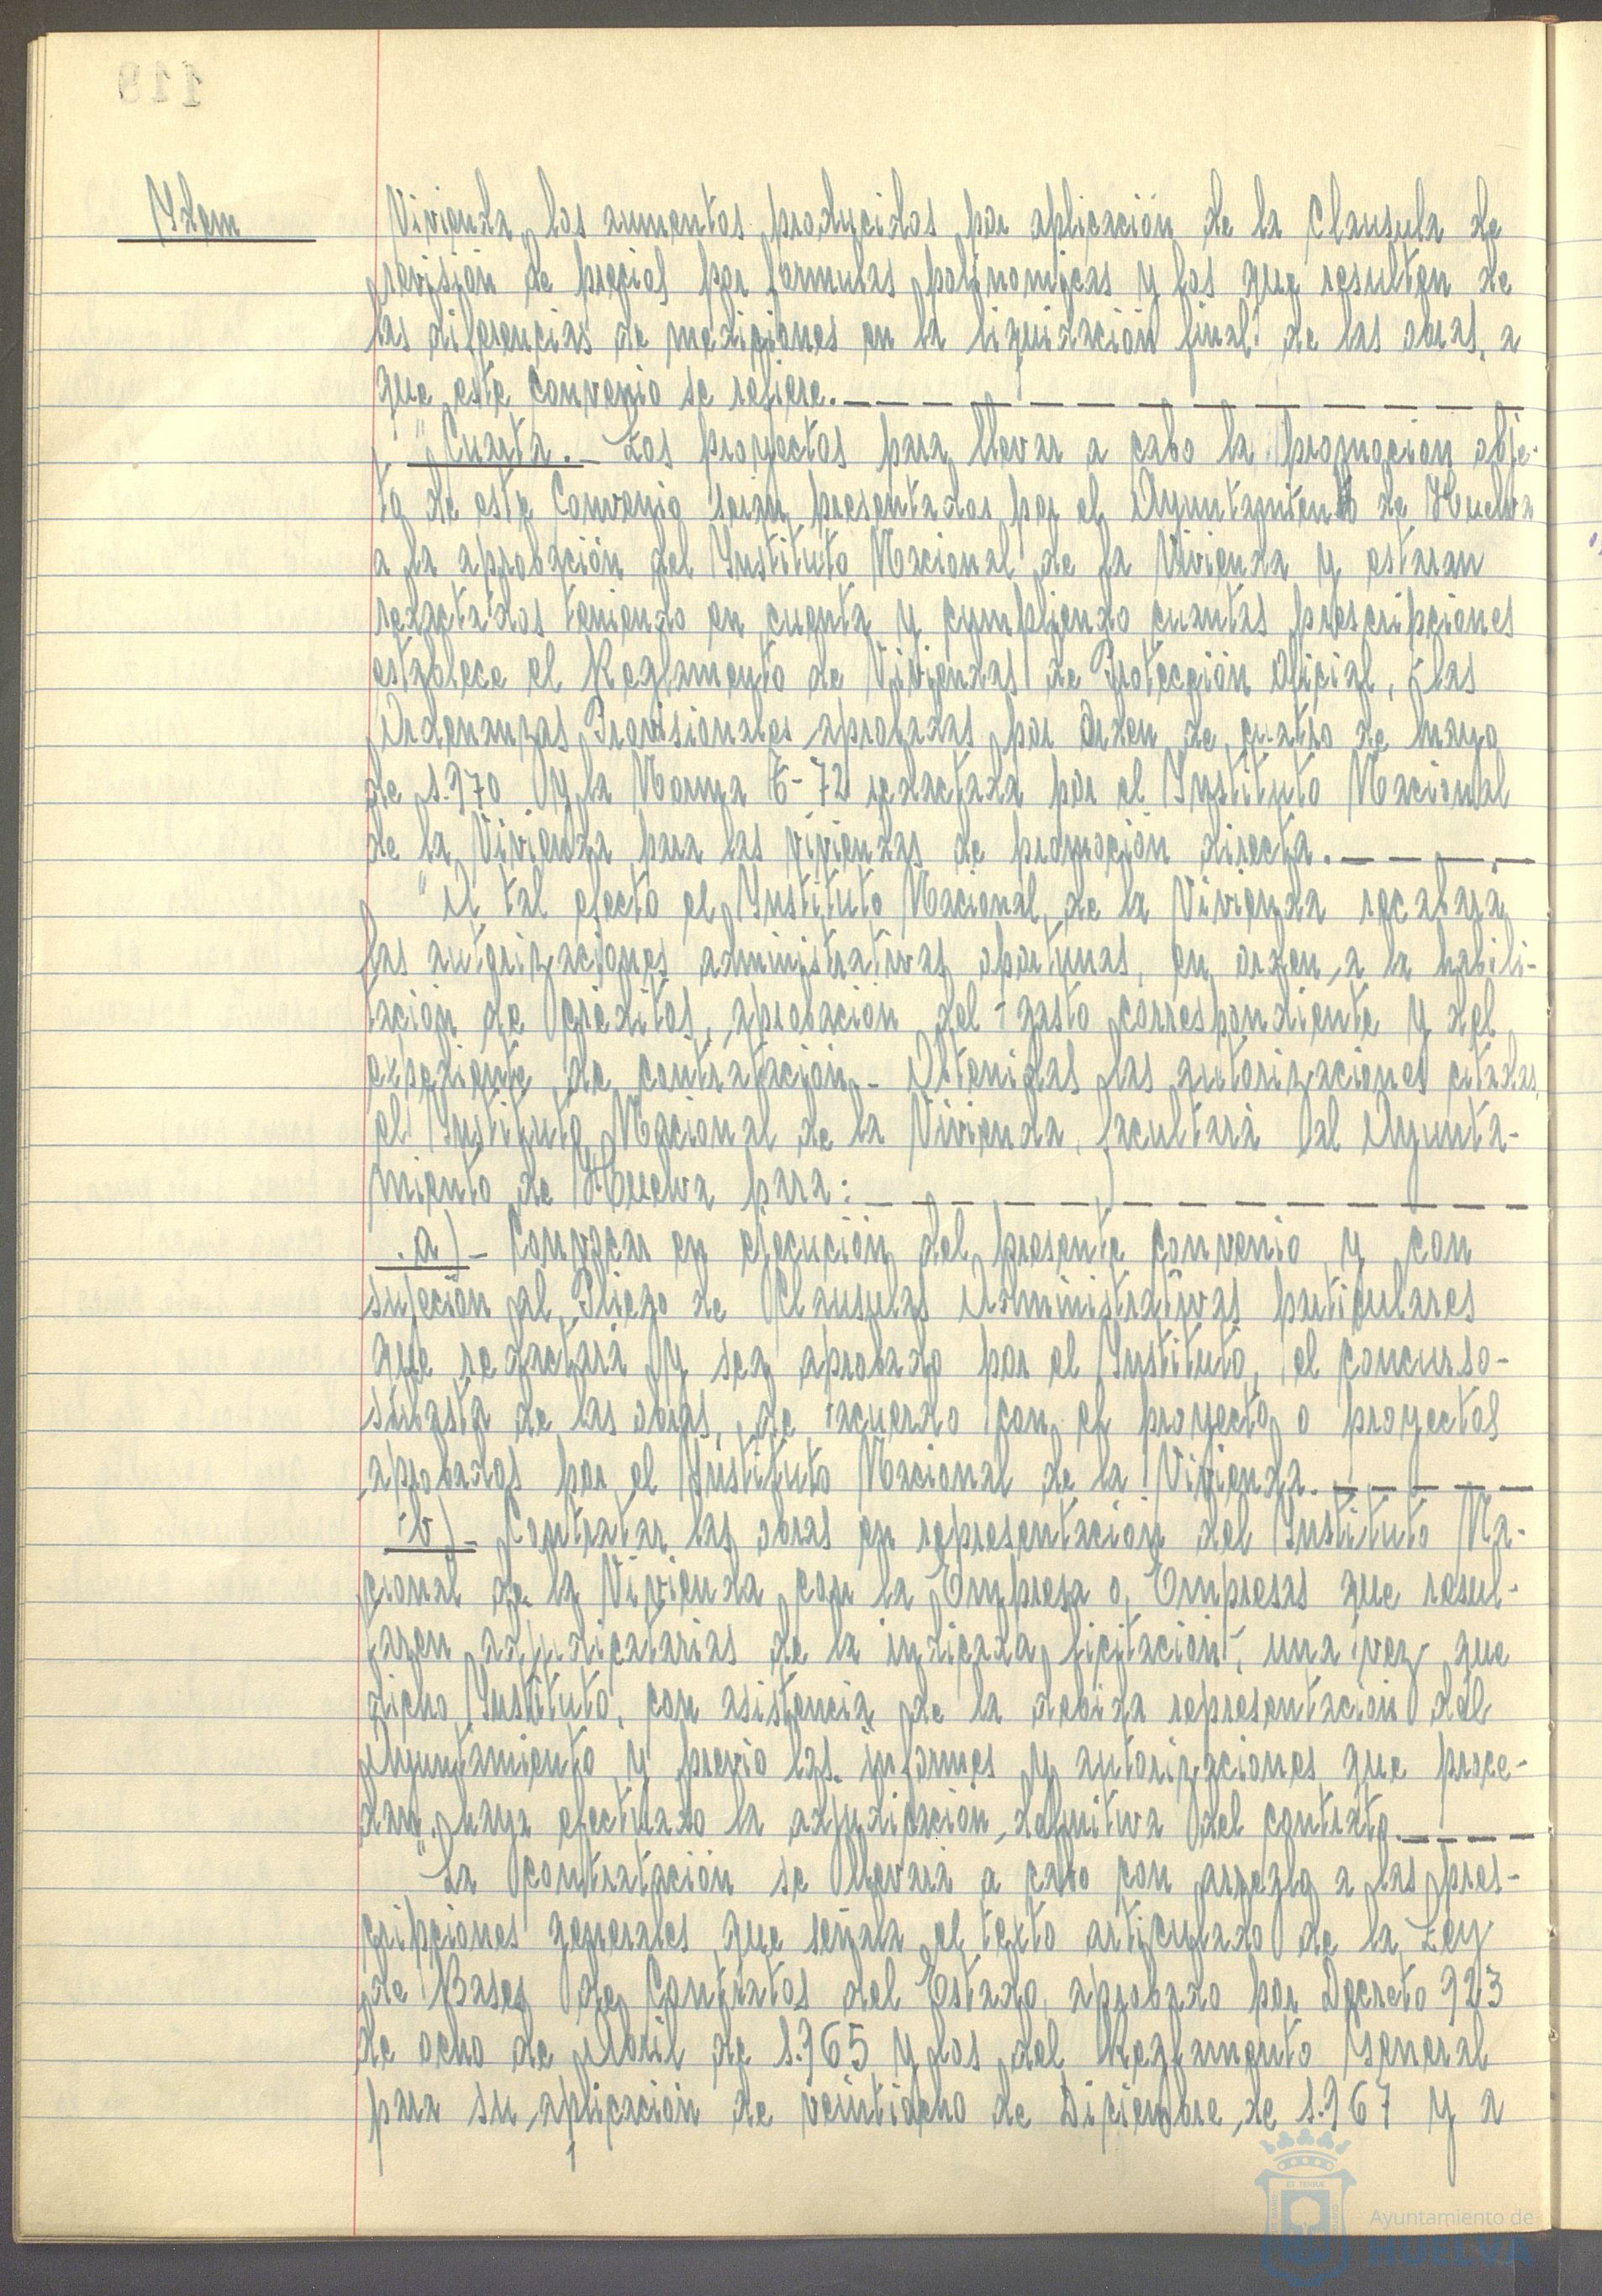 118
Ydem
Vivienda, los aumentos producidos por aplicación de la Clausula de
revisión de precios por formulas polinomicas y los que resulten de
las diferencias de mediciones en la liquidación final de las obras, a
que este convenio se refiere.
"Cuarta.- Los proyectos para llevar a cabo la promocion obje-
to de este Convenio seran presentados por el Ayuntamiento de Huelva
a la aprobación del Ynstituto Nacional de la Vivienda y estaran
redactados teniendo en cuenta y cumpliendo cuantas prescripciones
establece el Reglamento de Viviendas de Protección Oficial, las
Ordenanzas Provisionales aprobadas por Orden de cuatro de mayo
de 1.970 y la Norma 6-72 redactada por el Ynstituto Nacional
de la Vivienda para las viviendas de promoción directa.
"A tal efecto el Ynstituto Nacional de la Vivienda recabará
las autorizaciones administrativas oportunas, en orden a la habili-
tación de créditos, aprobación del gasto correspondiente y del
expediente de contratación.- Obtenidas las autorizaciones citadas,
el Ynstituto Nacional de la Vivienda, facultará al Ayunta-
miento de Huelva para:
a)- Convocar en ejecución del presente convenio y con
sujeción al Pliego de Clausulas Administrativas particulares
que redactará y sea aprobado por el Ynstituto, el concurso-
subasta de las obras, de acuerdo con el proyecto o proyectos
aprobados por el Ynstituto Nacional de la Vivienda.
b)- Contratar las obras en representación del Ynstituto Na-
cional de la Vivienda con la Empresa o Empresas que resul-
taren adjudicatarias de la indicada licitación, una vez que
dicho Ynstituto, con asistencia de la debida representación del
Ayuntamiento y previo los informes y autorizaciones que proce-
dan, haya efectuado la adjudicación definitiva del contrato.
"La contratación se llevará a cabo con arreglo a las pres-
cripciones generales que señala el texto articulado de la Ley
de Bases de Contratos del Estado, aprobado por Decreto 923
de ocho de Abril de 1.965 y los del Reglamento General
para su aplicación de veintiocho de Diciembre de 1.967 y a
Ayuntamiento de
HUELVA